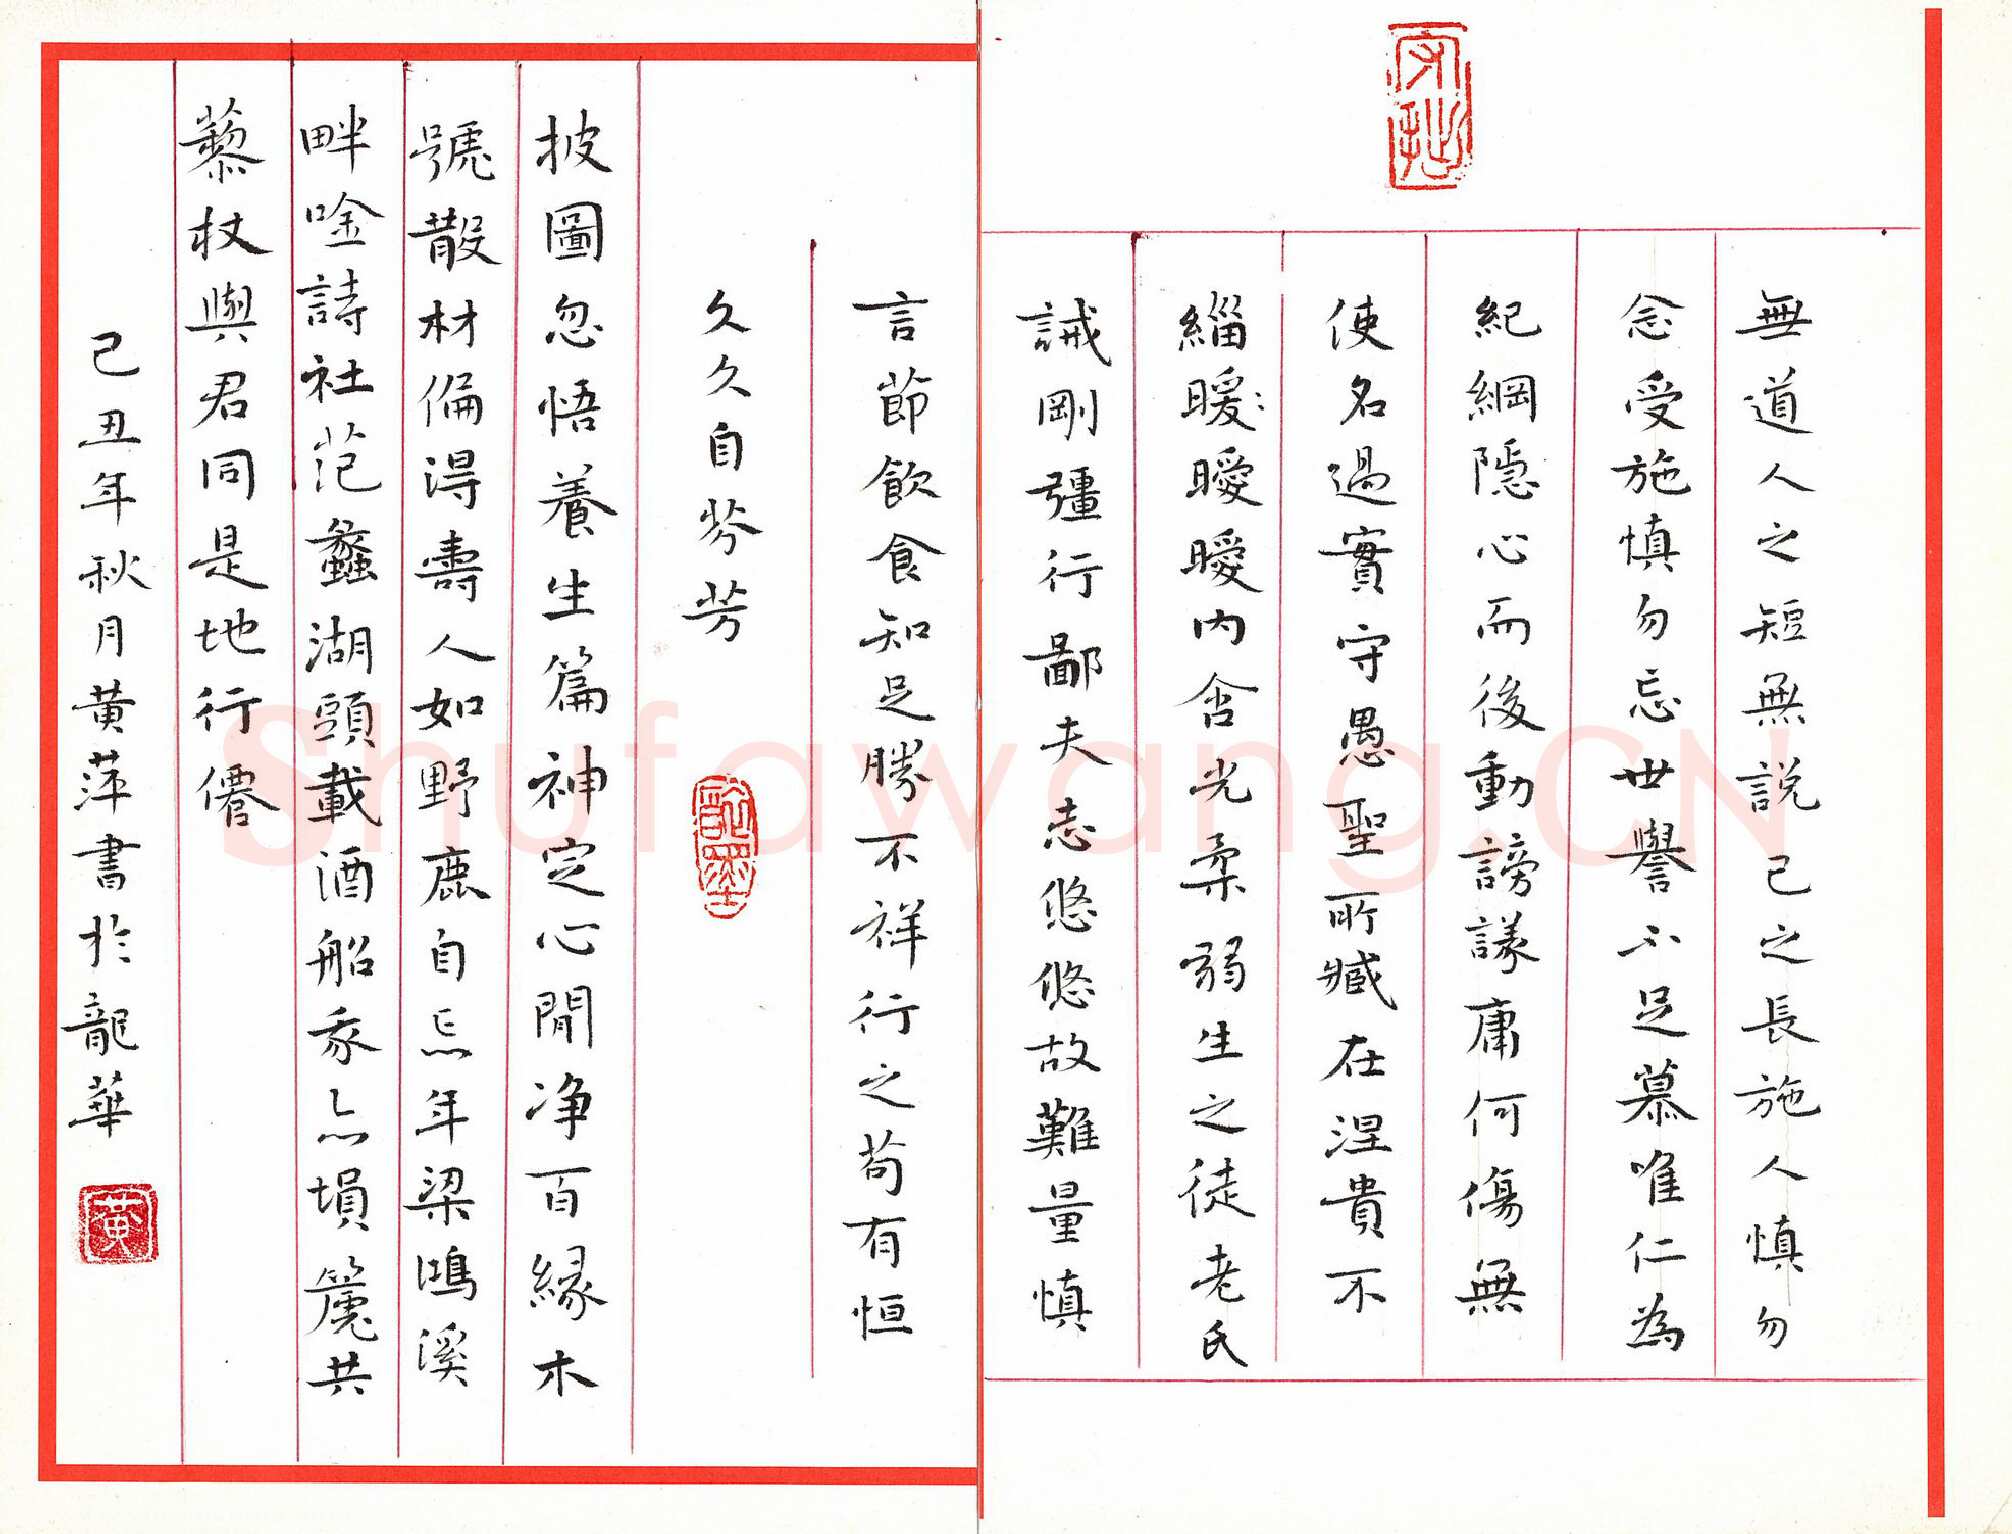 無道人之短無説己之長施人慎勿
念受施慎勿忘世譽不足慕唯仁為
紀綱隱心而後動謗議庸何傷無
使名過實守愚聖所臧在涅貴不
緇暖曖曖内含光柔弱生之徒老氏
誡剛彊行鄙夫志悠悠故難量慎
言節飲食知足勝不祥行之苟有恒
久久自芬芳
披圖忽悟養生篇神定心閒净百緣木
號散材偏得壽人如野鹿自忘年梁鴻溪
畔唫詩社范蠡湖頭載酒船我亦塤篪共
藜杖與君同是地行僊
己丑年秋月黄萍書於龍華
黄
Shufawang.CN